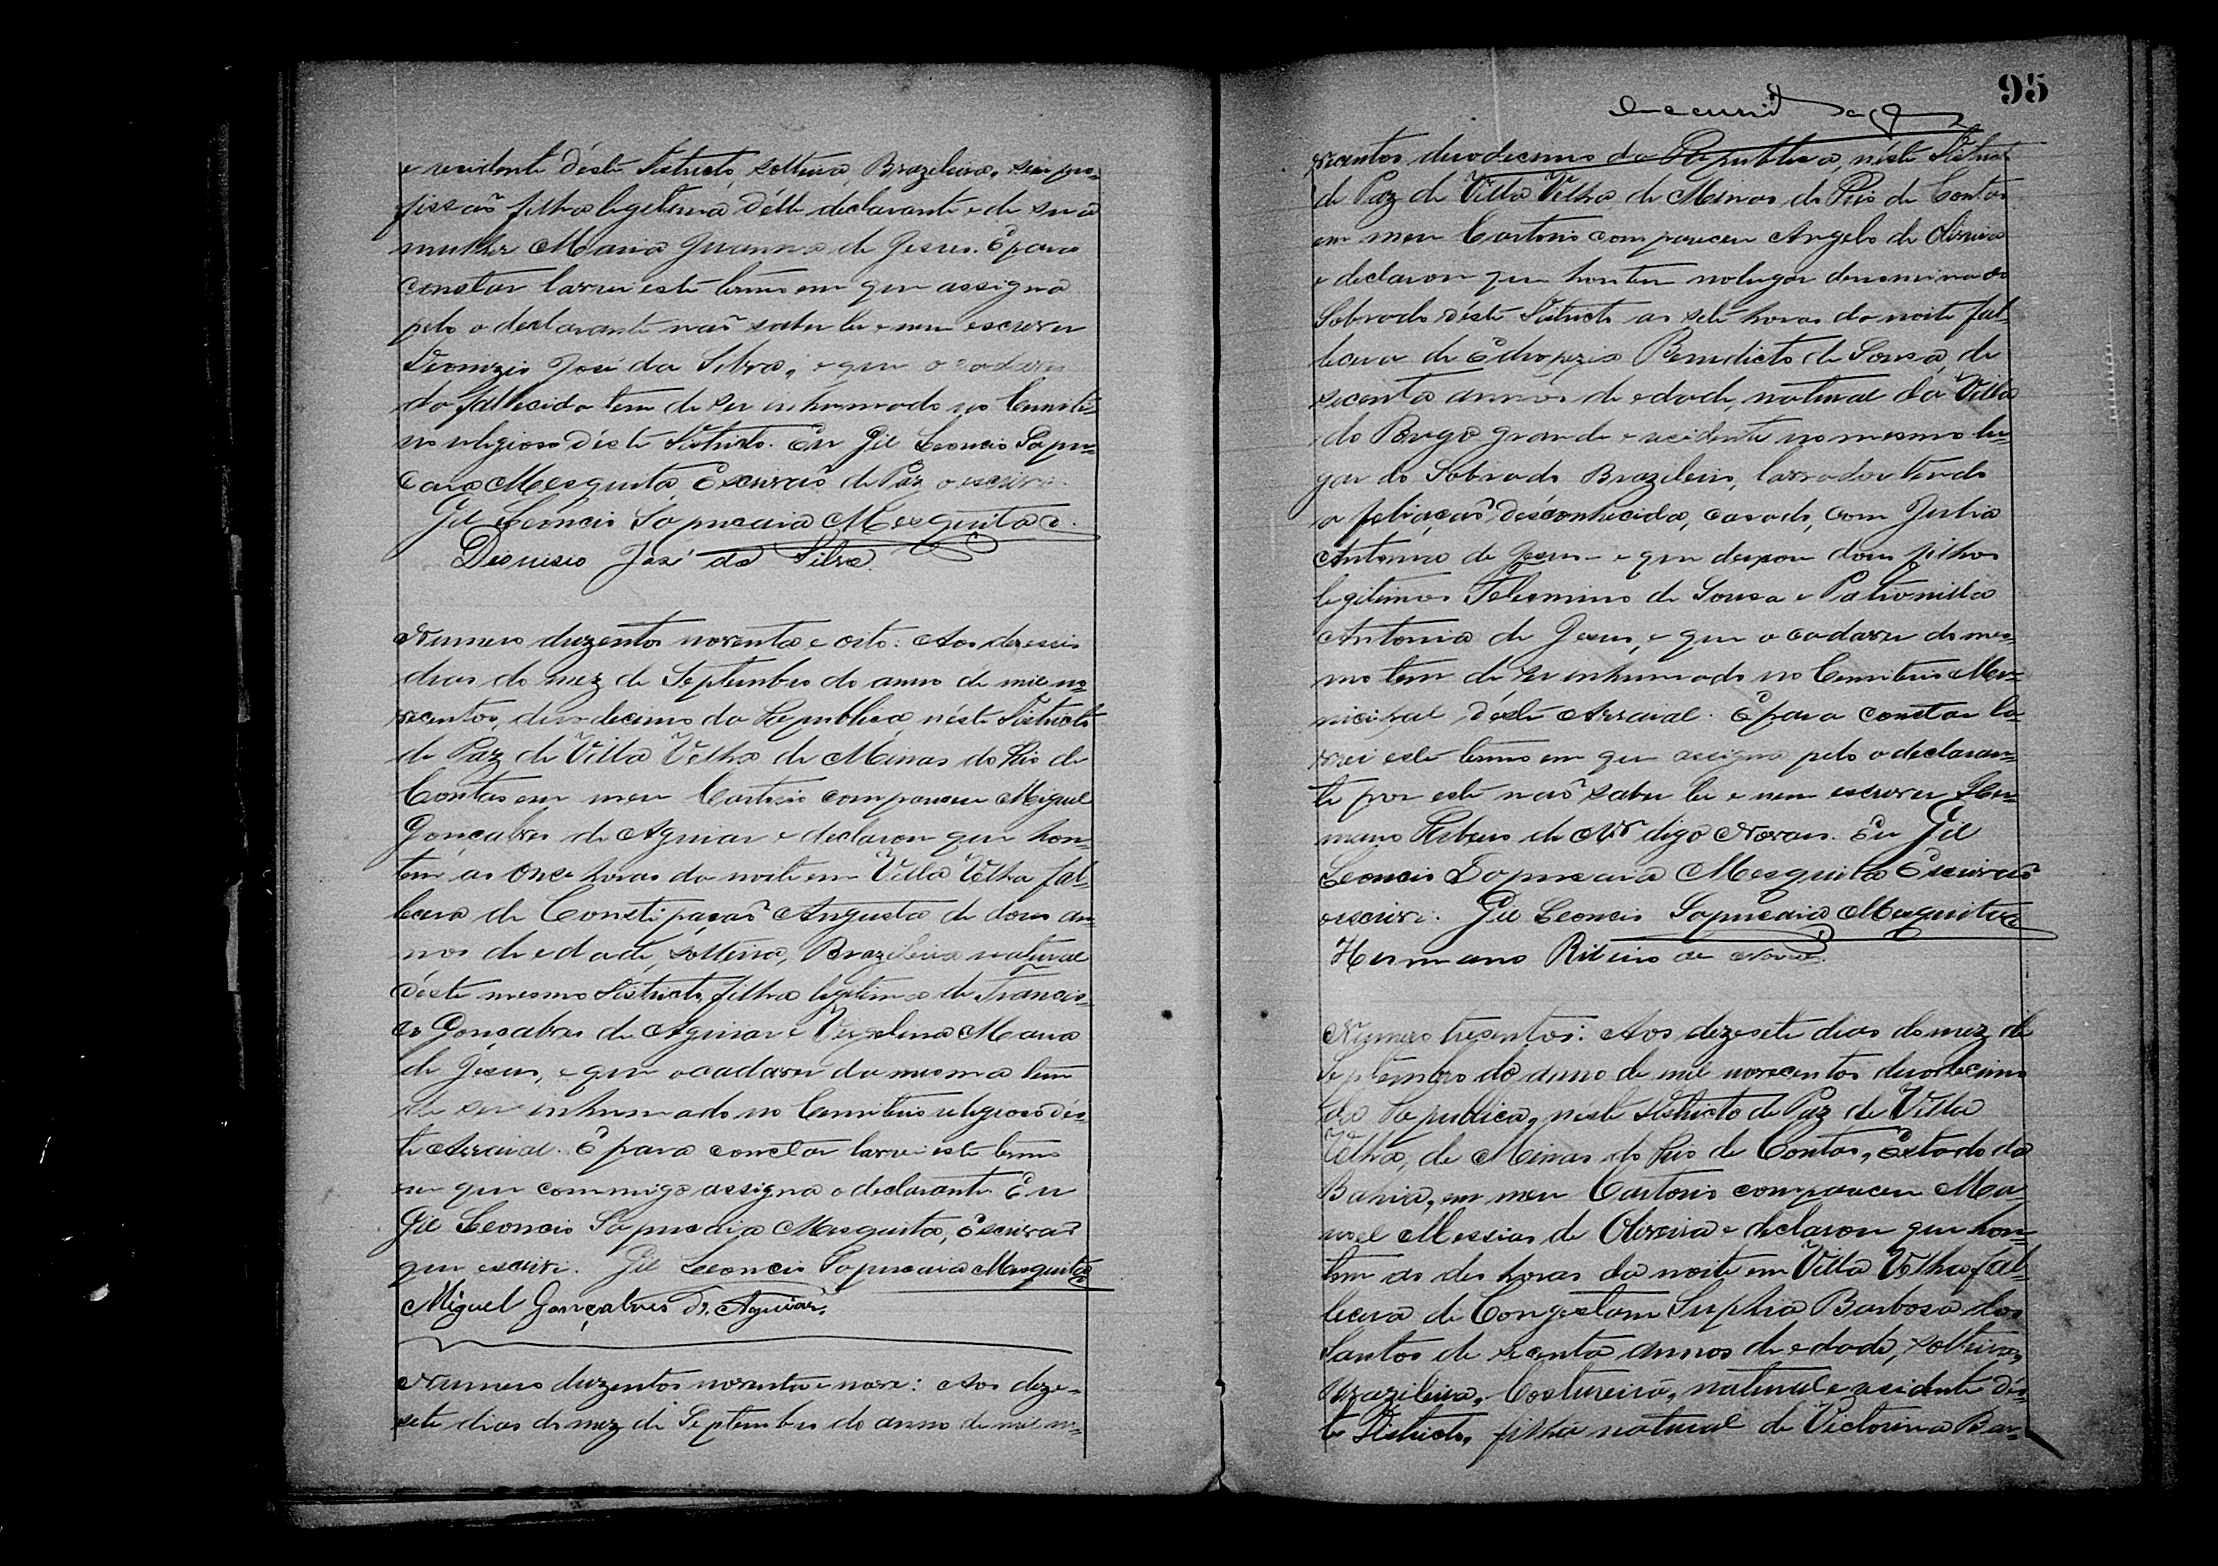 e residente déste Districto, solteira, Brazileira, sem pro-
fissão filha legitima délle declarante e de sua
mulher Maria Juanna de Jesus. E para
constar lavrei este termo em que assigna
pelo o declarante não saber ler e nem escrever
Dionizio José da Silva, e que o cadaver
do fallecido tem de ser inhumado no Cemite-
rio religioso déste Districto. Eu Gil Leoncio Sapu-
caia Mesquita, Escrivão de Paz o escrivi.
Gil Leoncio Sapucaia Mesquita.
Dionisio José da Silva.
Numero duzentos noventa e oito: Aos dezesseis
dias do mez de Septembro do anno de mil no-
vecentos, duodecimo da Republica, néste Districto
de Paz de Villa Velha de Minas do Rio de
Contas em meu Cartorio compareceu Miguel
Gonçalves de Aguiar e declarou que hon-
tem as onze horas da noite em Villa Velha fal-
lecera de Constipação Augusta de dous an-
nos de edade, solteira, Brazileira natural
déste mesmo Districto, filha legitima de Francis-
co Gonçalves de Aguiar e Maria
de Jesus, e que o cadaver da mesma tem
de ser inhumado no Cemiterio religioso dés-
te Arraial. E para constar lavrei este termo
em que commigo assigna o declarante. Eu
Gil Leoncio Sapucaia Mesquita, Escrivão
que escrivi. Gil Leoncio Sapucaia Mesquita
Miguel Gonçalves de Aguiar.
Numero duzentos noventa e nove: Aos deze-
sete dias do mez de Septembro do anno de mil no-
95
vecentos duodecimo da Republica, néste Districto
de Paz de Villa Velha de Minas do Rio de Contas
em meu Cartorio compareceu Angelo de Oliveira
e declarou que hontem no lugar denominado
Sobrado déste Districto as sete horas da noite fal-
lecera de Edropezia Benedicto de Sousa, de
secenta annos de edade, natural da Villa
do Brejo grande e residente no mesmo lu-
gar do Sobrado Brazileiro, lavrador tendo
a feliação desconhecida, casado, com Julia
Antonia de Jesus e que deixou dous filhos
legitimos de Sousa e Patronilla
Antonia de Jesus, e que o cadaver do mes-
mo tem de ser inhumado no Cemiterio Mu-
nicipal déste Arraial. E para constar la-
vrei este termo em que assigna pelo o declaran-
te por este não saber ler e nem escrever Her-
mano Ribeiro de Nr digo Novais. Eu Gil
Leoncio Sapucaia Mesquita Escrivão
o escrivi. Gil Leoncio Sapucaia Mesquita
Hermano Ribeiro de Novais.
Numero tresentos: Aos dezesete dias do mez de
Septembro do anno de mil novecentos duodecimo
da Republica, neste Districto de Paz de Villa
Velha, de Minas do Rio de Contas, Estado da
Bahia, em meu Cartorio compareceu Ma-
noel Messias de Oliveira e declarou que hon-
tem as des horas da noite em Villa Velha fal-
lecera de Congestam Suphia Barbosa dos
Santos de secenta annos de edade, solteira,
Brazileira, Costureira, natural e residente dés-
te Districto, filha natural de Victorina Bar-